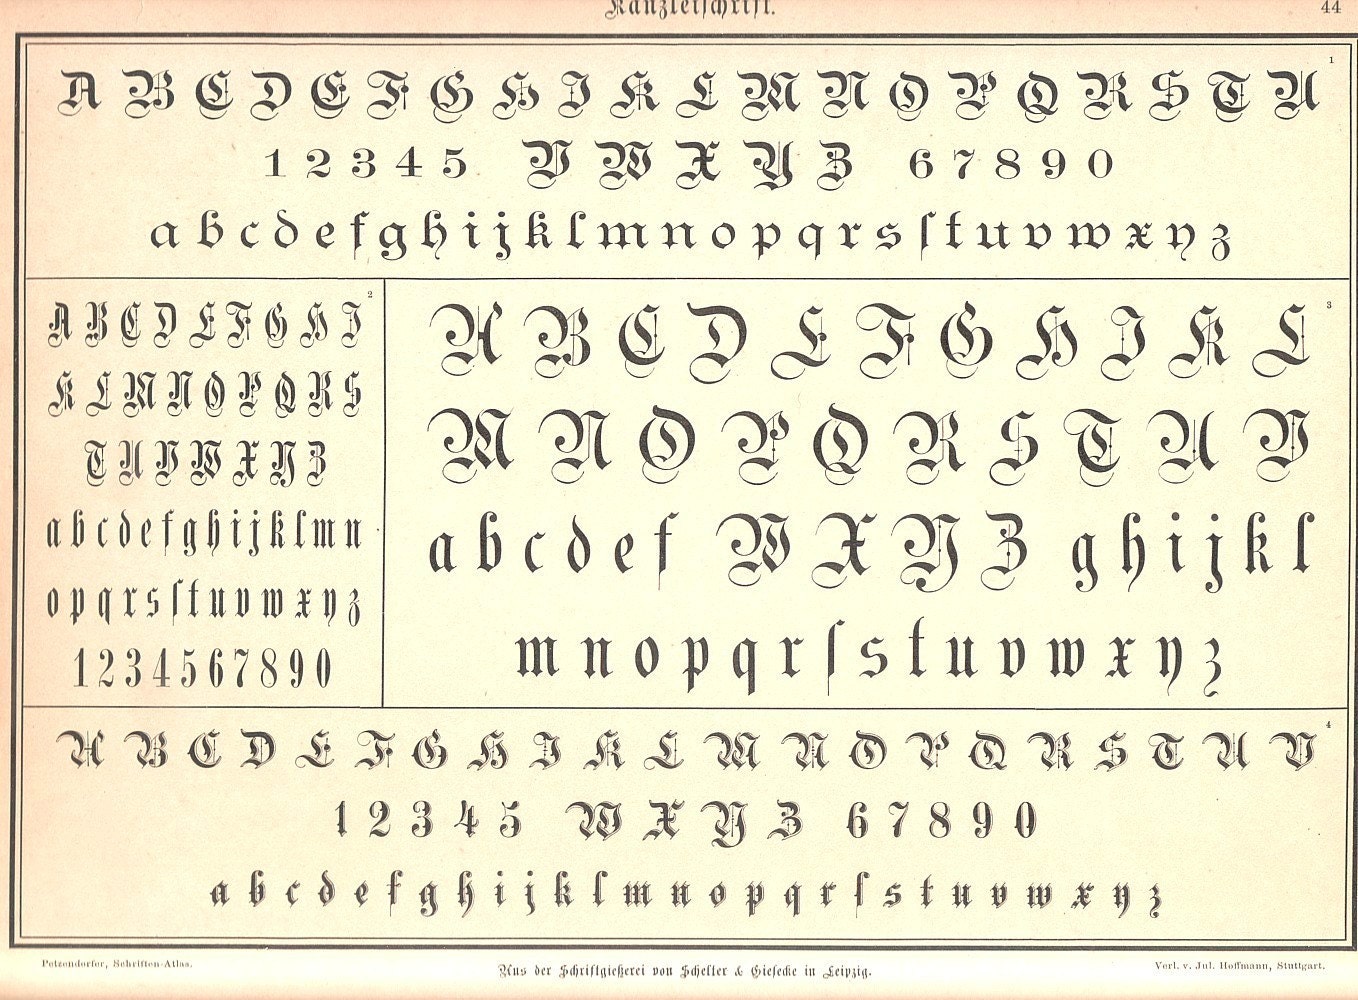 Kanzleischrift.
44
1
A B C D E F G H I K L M N O P Q R S T U
1 2 3 4 5 V W X Y Z 6 7 8 9 0
a b c d e f g h i j k l m n o p q r s ſ t u v w x y z
2
A B C D E F G H I
K L M N O P Q R S
T U V W X Y Z
a b c d e f g h i j k l m n
o p q r s ſ t u v w x y z
1 2 3 4 5 6 7 8 9 0
3
A B C D E F G H I K L
M N O P Q R S T U V
a b c d e f W X Y Z g h i j k l
m n o p q r ſ s t u v w x y z
4
A B C D E F G H I K L M N O P Q R S T U V
1 2 3 4 5 W X Y Z 6 7 8 9 0
a b c d e f g h i j k l m n o p q r ſ s t u v w x y z
Petzendorfer, Schriften-Atlas.
Aus der Schriftgießerei von Schelter & Giesecke in Leipzig.
Verl. v. Jul. Hoffmann, Stuttgart.